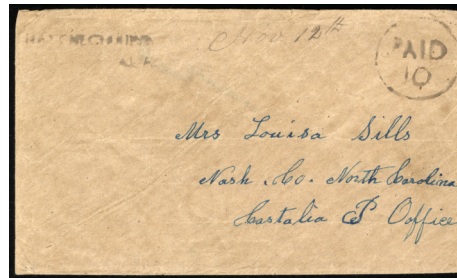 Nov 12th
PAID
10
Mrs Louisa Sills
Nash Co. North Carolina
Castalia P Office